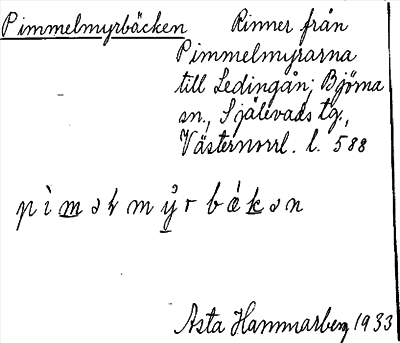 Pimmelmyrbäcken Rinner från
Pimmelmyrarna
till Ledingån; Björna
sn., Själevads tg.,
Västernorrl. l. 588
Asta Hammarberg 1933